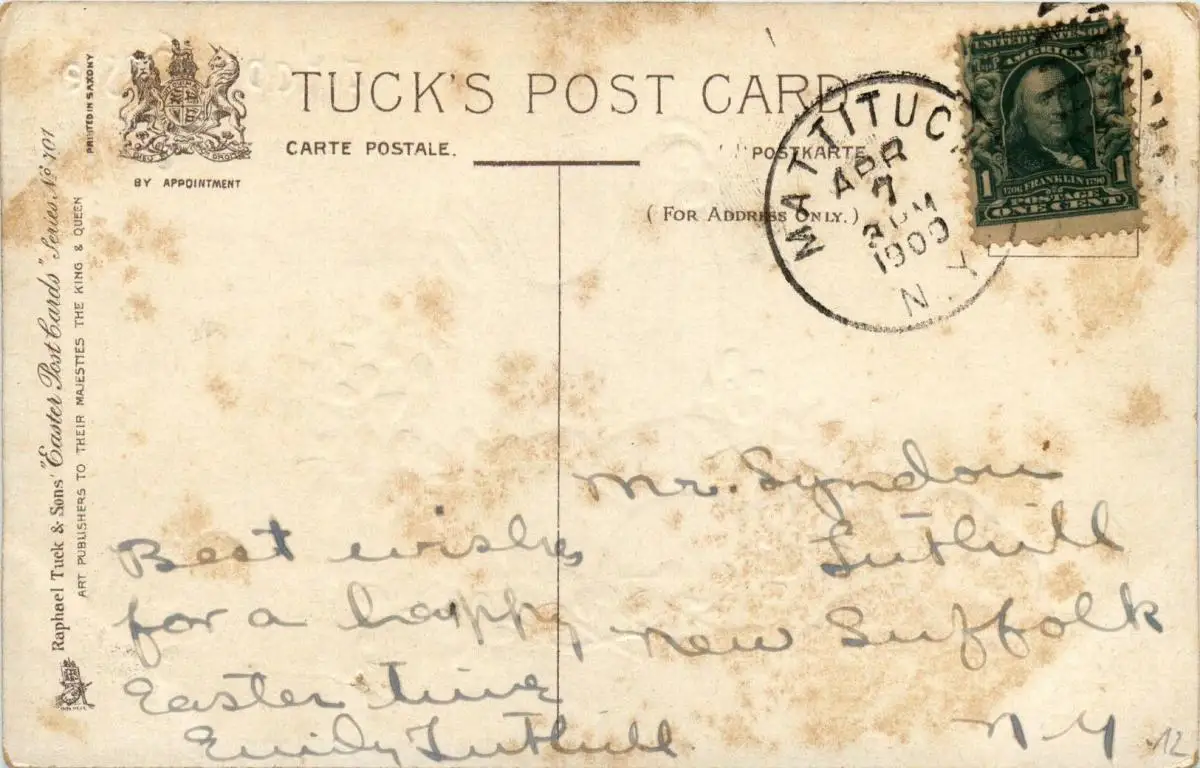 TUCK'S POST CARD
CARTE POSTALE.
POSTKARTE
(FOR ADDRESS ONLY.)
BY APPOINTMENT
PRINTED IN SAXONY
Raphael Tuck & Sons' "Easter Post Cards" Series. No. 101
ART PUBLISHERS TO THEIR MAJESTIES THE KING & QUEEN
MATTITUC
APR
7
1909
N.Y.
UNITED STATES OF
AMERICA
1 1
1706 FRANKLIN 1790
POSTAGE
ONE CENT
Best wishes
for a happy
Easter time
Emily Tuthill
Mr. Syndon
Tuthill
New Suffolk
N Y
12